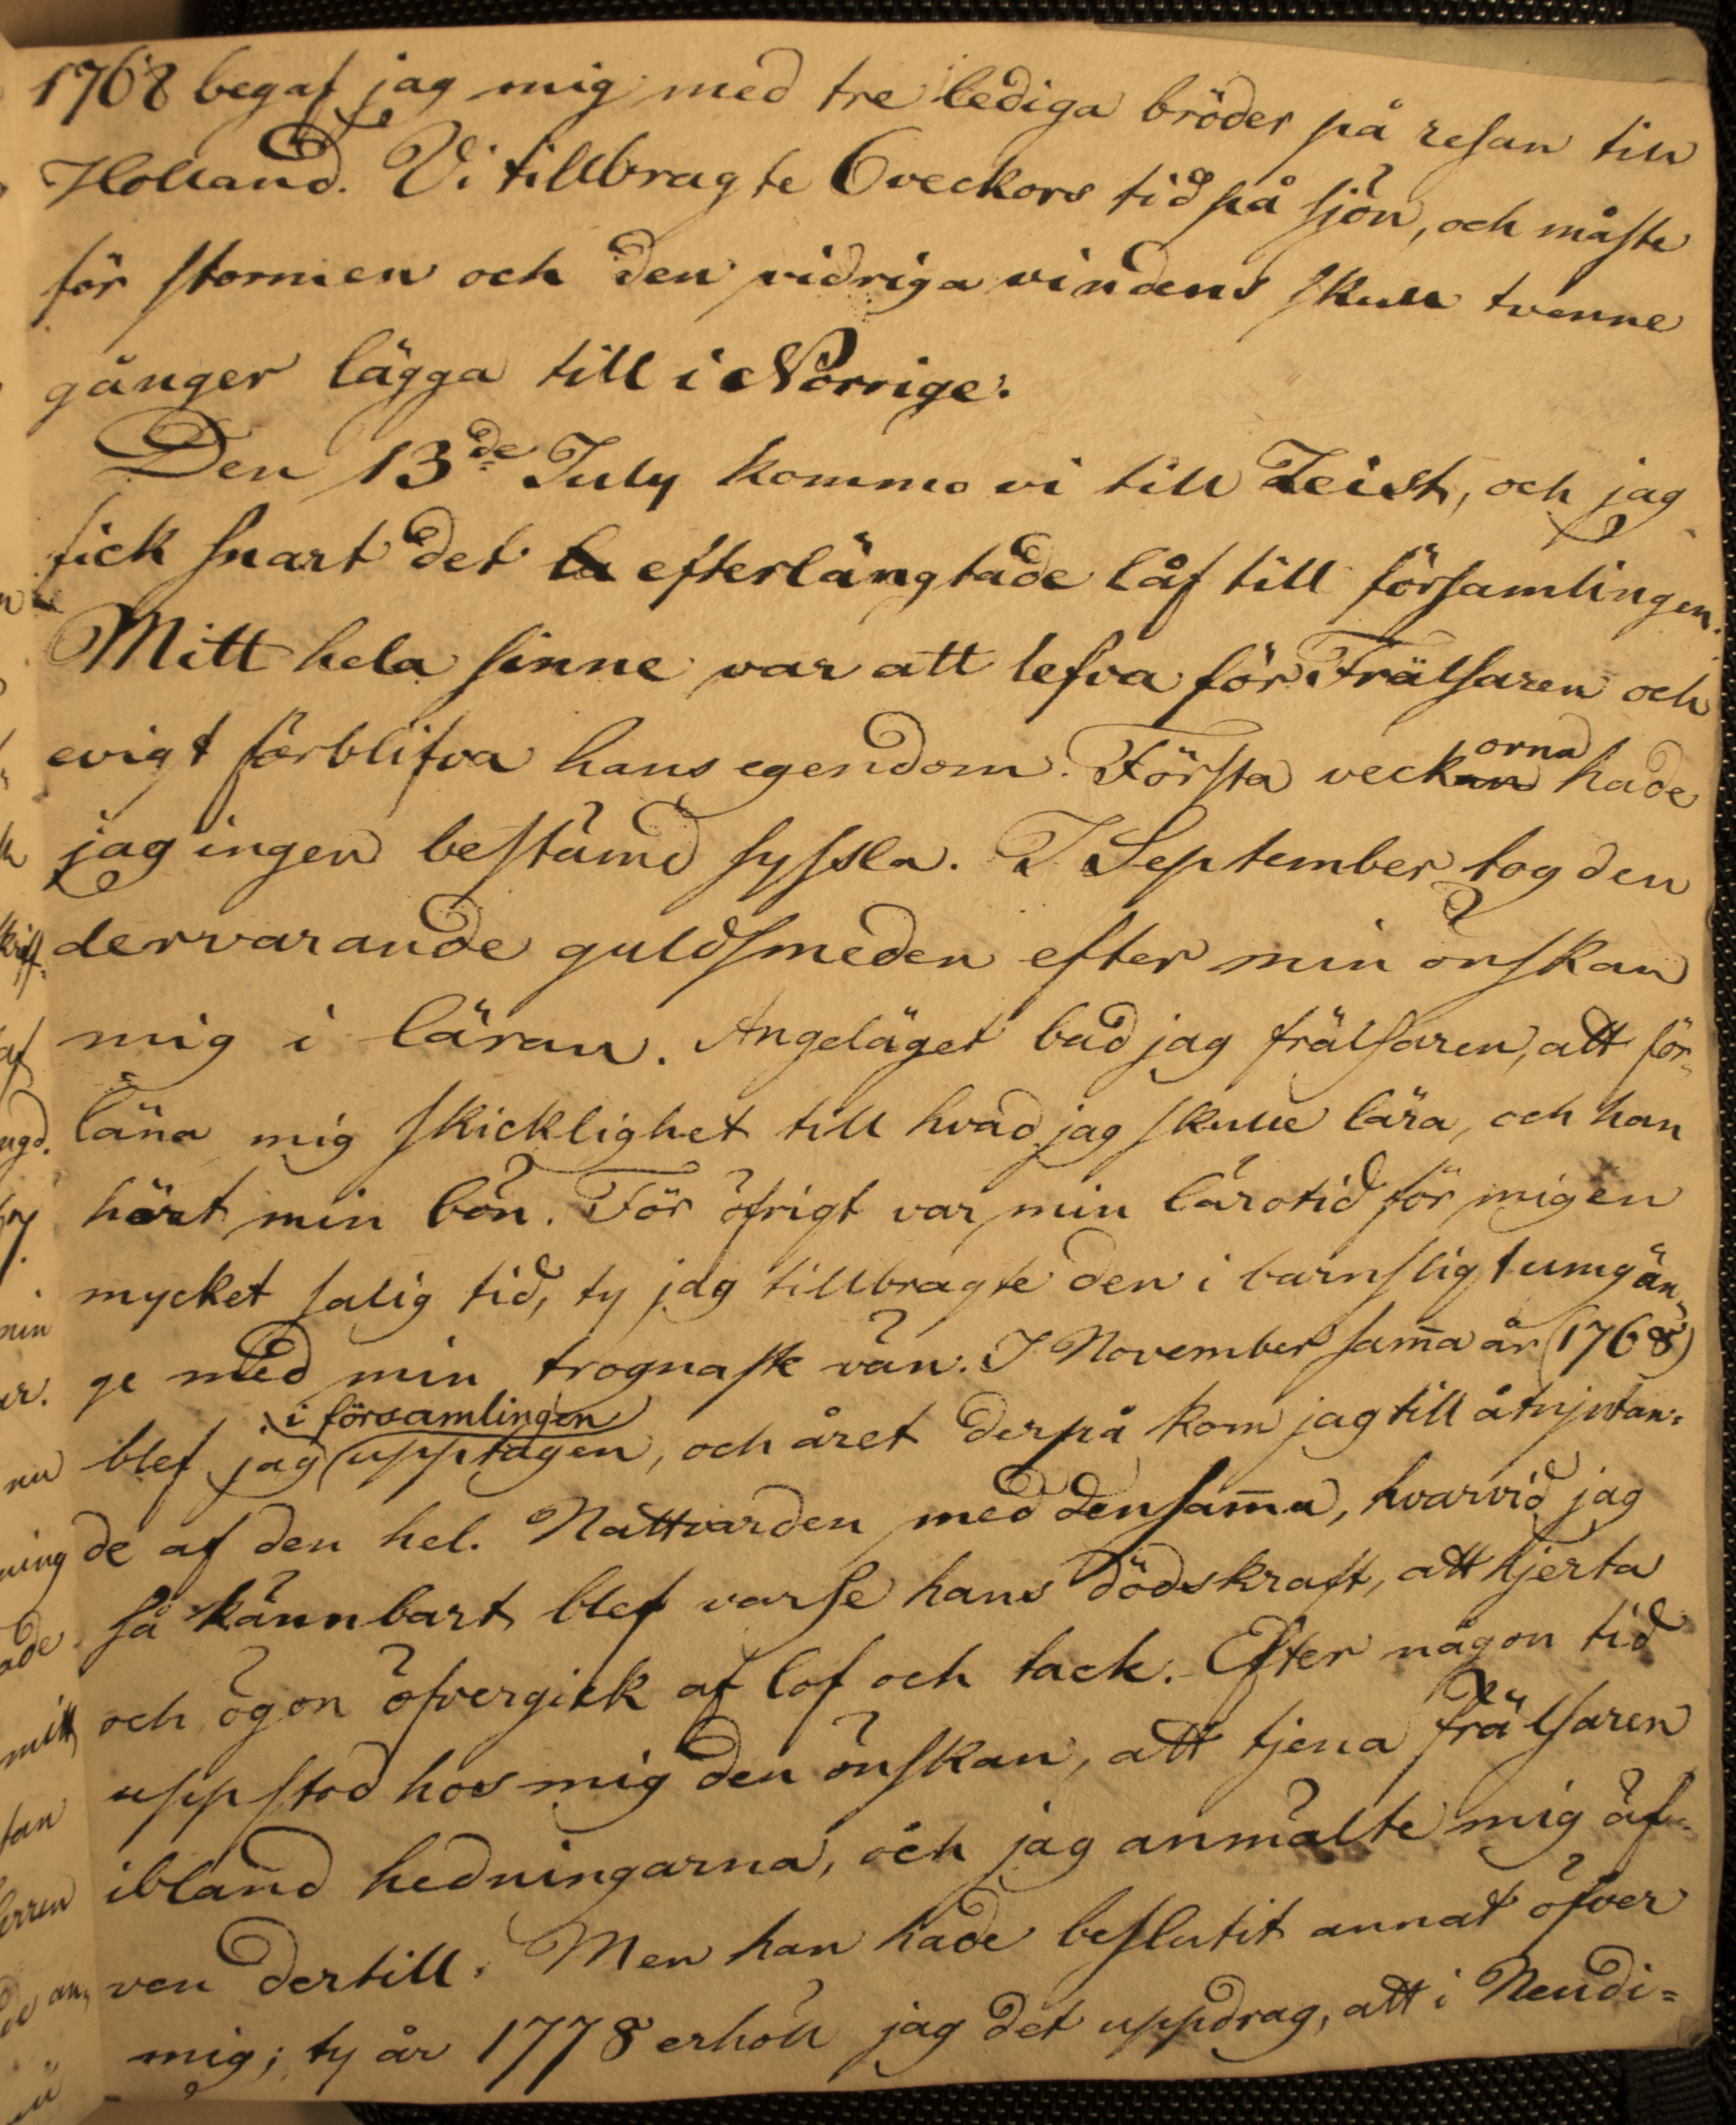 1768 begaf jag mig med tre lediga bröder på resan till
Holland. Vi tillbragte 6 veckors tid på sjön, och måste
för stormen och den vidriga vindens skull tvenne
gånger lägga till i Norrige.
Den 13de July kommo vi till Zeist, och jag
fick snart det efterlängtade låf till församlingen.
Mitt hela sinne var att lefva för Frälsaren och
evigt förblifva hans egendom. Första veckorna hade
jag ingen bestämd syssla. I September tog den
dervarande guldsmeden efter min önskan
mig i läran. Angeläget bad jag frälsaren, att för-
läna mig skicklighet till hvad jag skulle lära, och han
hört min bön. För öfrigt var min lärotid för mig en
mycket salig tid, ty jag tillbragte den i barnsligt umgän-
ge med min trognaste vän. I November sam̄a år (1768)
i församlingen
blef jag upptagen, och året derpå kom jag till åtnjutan-
de af den hel. Nattvarden med densam̄a, hvarvid jag
så kännbart blef varse hans dödskraft, att hjerta
och ögon öfvergick af lof och tack. Efter någon tid
uppstod hos mig den önskan, att tjena frälsaren
ibland hedningarna, och jag anmälte mig äf-
ven dertill. Men han hade beslutit annat öfver
mig; ty år 1778 erhöll jag det uppdrag, att i Neudi=